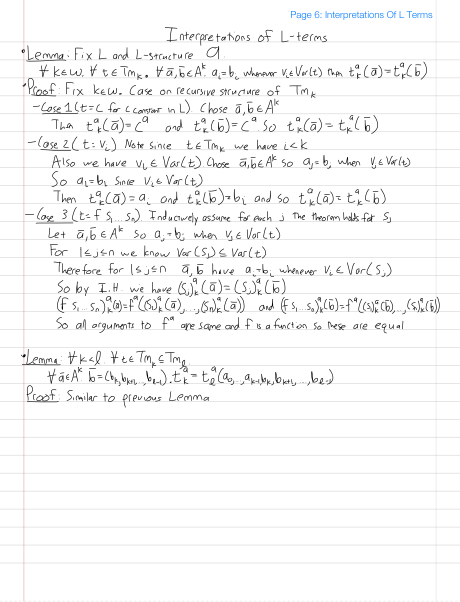 Page 6: Interpretations Of L Terms
Interpretations of L-terms
• Lemma: Fix L and L-structure 𝔄
∀ k∈ω. ∀ t∈Tmₖ. ∀ ā,b̄∈Aᵏ. aᵢ=bᵢ whenever vᵢ∈Var(t) then tₖ^𝔄(ā)=tₖ^𝔄(b̄)
• Proof: Fix k∈ω. Case on recursive structure of Tmₖ
- Case 1 (t=c for c constant in L) Chose ā,b̄∈Aᵏ
Then tₖ^𝔄(ā)=c^𝔄 and tₖ^𝔄(b̄)=c^𝔄. So tₖ^𝔄(ā)=tₖ^𝔄(b̄)
- Case 2 (t=vᵢ) Note since t∈Tmₖ we have i<k
Also we have vᵢ∈Var(t). Chose ā,b̄∈Aᵏ so aⱼ=bⱼ when vⱼ∈Var(t)
So aᵢ=bᵢ since vᵢ∈Var(t)
Then tₖ^𝔄(ā)=aᵢ and tₖ^𝔄(b̄)=bᵢ and so tₖ^𝔄(ā)=tₖ^𝔄(b̄)
- Case 3 (t=f s₁ … sₙ) Inductively assume for each j the theorem holds for sⱼ
Let ā,b̄∈Aᵏ so aⱼ=bⱼ when vⱼ∈Var(t)
For 1≤j≤n we know Var(sⱼ)⊆Var(t)
Therefore for 1≤j≤n ā,b̄ have aᵢ=bᵢ whenever vᵢ∈Var(sⱼ)
So by I.H. we have (sⱼ)ₖ^𝔄(ā)=(sⱼ)ₖ^𝔄(b̄)
(f s₁ … sₙ)ₖ^𝔄(ā)=f^𝔄((s₁)ₖ^𝔄(ā),…,(sₙ)ₖ^𝔄(ā)) and (f s₁ … sₙ)ₖ^𝔄(b̄)=f^𝔄((s₁)ₖ^𝔄(b̄),…,(sₙ)ₖ^𝔄(b̄))
So all arguments to f^𝔄 are same and f is a function so these are equal
• Lemma: ∀ k<l. ∀ t∈Tmₖ⊆Tmₗ
∀ ā∈Aᵏ b̄=(bₖ,bₖ₊₁,…,bₗ₋₁). tₖ^𝔄=tₗ^𝔄(a₀,…,aₖ₋₁,bₖ,bₖ₊₁,…,bₗ₋₁)
Proof: Similar to previous Lemma